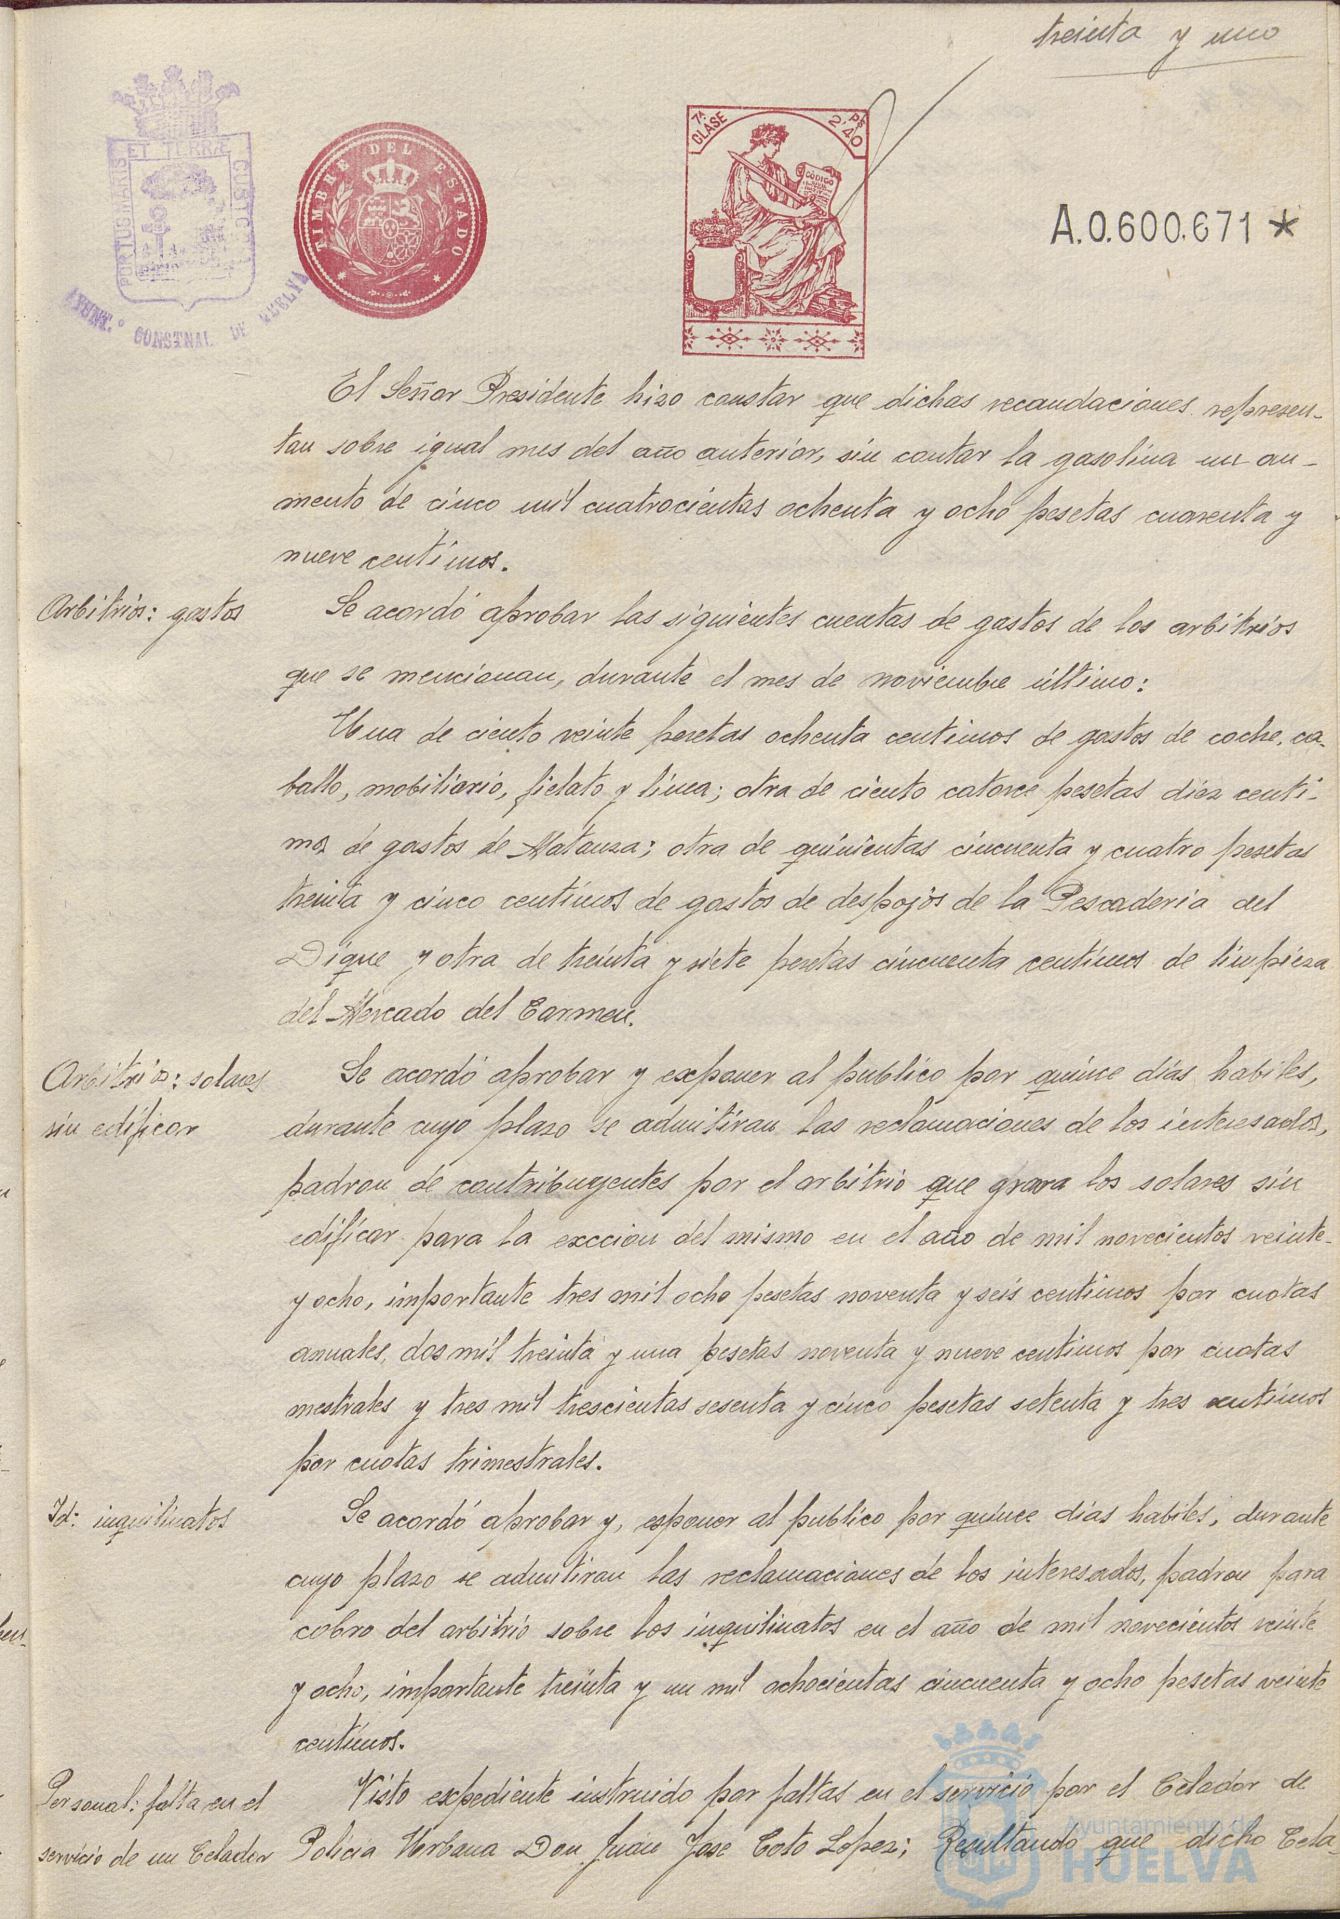 treinta y uno
PORTUS MARIS ET TERRÆ CUSTODIA
CONSTNAL DE HUELVA
TIMBRE DEL ESTADO
7ª CLASE
Pts 2'40
CODIGO
A.0.600.671 *
El Señor Presidente hizo constar que dichas recaudaciones represen-
tan sobre igual mes del año anterior, sin contar la gasolina un au-
mento de cinco mil cuatrocientas ochenta y ocho pesetas cuarenta y
nueve centimos.
Arbitrios: gastos
Se acordó aprobar las siguientes cuentas de gastos de los arbitrios
que se mencionan, durante el mes de noviembre último:
Una de ciento veinte pesetas ochenta centimos de gastos de coche, ca-
ballo, mobiliario, fielato y linea; otra de ciento catorce pesetas diez centi-
mos de gastos de Matanza; otra de quinientas cincuenta y cuatro pesetas
treinta y cinco centimos de gastos de despojos de la Pescaderia del
Dique y otra de treinta y siete pesetas cincuenta centimos de limpieza
del Mercado del Carmen.
Arbitrios: solares
sin edificar
Se acordó aprobar y exponer al publico por quince dias habiles,
durante cuyo plazo se admitiran las reclamaciones de los interesados,
padron de contribuyentes por el arbitrio que grava los solares sin
edificar para la exccion del mismo en el año de mil novecientos veinte-
y ocho, importante tres mil ocho pesetas noventa y seis centimos por cuotas
anuales, dos mil treinta y una pesetas noventa y nueve centimos por cuotas
mestrales y tres mil trescientas sesenta y cinco pesetas setenta y tres centimos
por cuotas trimestrales.
Id: inquilinatos
Se acordó aprobar y, esponer al publico por quince dias habiles, durante
cuyo plazo se admitiran las reclamaciones de los interesados, padron para
cobro del arbitrio sobre los inquilinatos en el año de mil novecientos veinte
y ocho, importante treinta y un mil ochocientas cincuenta y ocho pesetas veinte
centimos.
Personal: falta en el
servicio de un Celador
Visto expediente instruido por faltas en el servicio por el Celador de
Policia Urbana Don Juan Jose Coto Lopez; Resultando que dicho Cela-
Ayuntamiento de
HUELVA